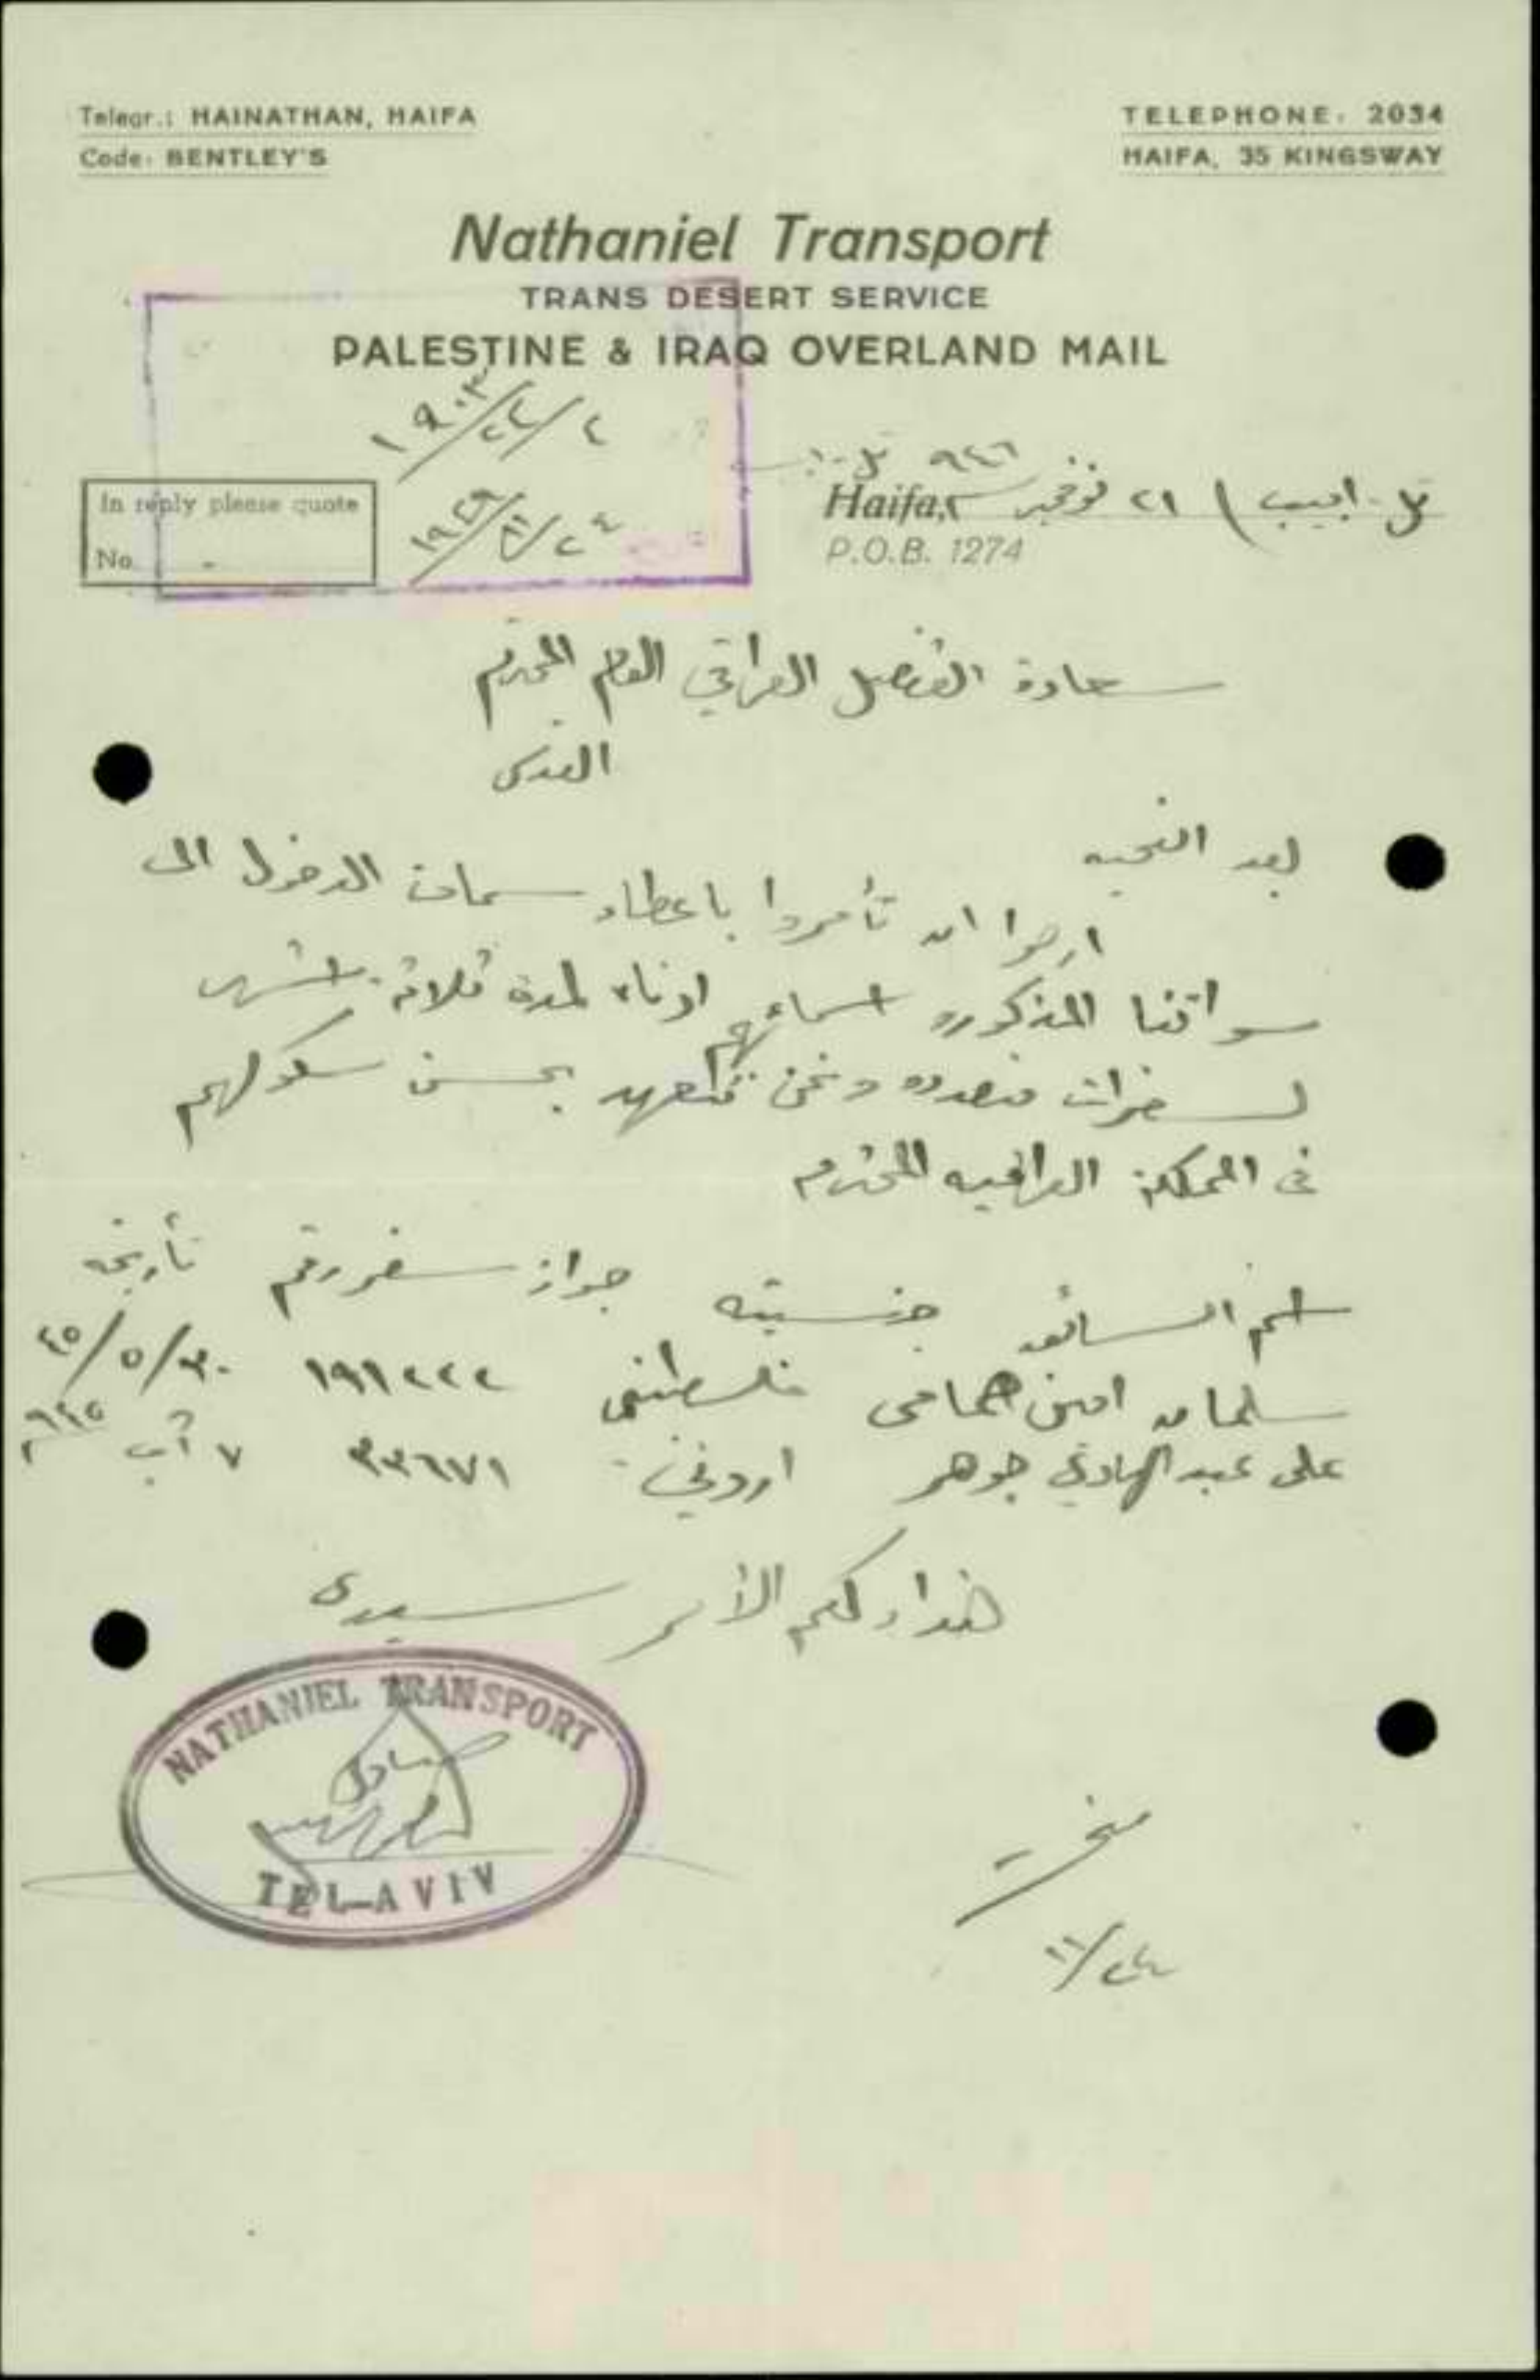 Telegr.: HAINATHAN, HAIFA
Code: BENTLEY'S
TELEPHONE: 2034
HAIFA, 35 KINGSWAY
Nathaniel Transport
TRANS DESERT SERVICE
PALESTINE & IRAQ OVERLAND MAIL
In reply please quote
No.
تل-ابيب ٢١ نوفمبر
Haifa,
P.O.B. 1274
سعادة القنصل العراقي العام المحترم
القدس
بعد التحيه
ارجوا ان تأمروا باعطاء سمات الدخول الى
سواقنا المذكوره اسمائهم ادناه لمدة ثلاثة اشهر
لسفرات متعدده ونحن نتعهد بحسن سلوكهم
في المملكة العراقيه المحترم
اسم السائق جنسيته جواز سفر رقم تأريخه
سلمان امين حمامى فلسطيني ١٩١٢٢٢ ٣٠/٥/٤٥
على عبد الهادي جوهر اردني ٣٣٦٧١ ٧ آب ٩٤٥
هذا ولكم الأمر سيدى
NATHANIEL TRANSPORT
TEL-AVIV
١١/٢٤